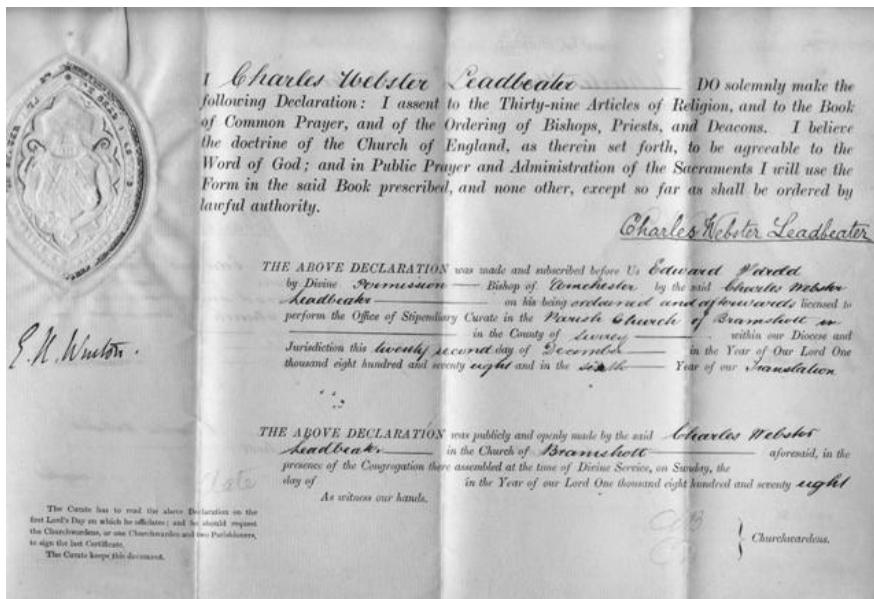 I Charles Webster Leadbeater DO solemnly make the
following Declaration: I assent to the Thirty-nine Articles of Religion, and to the Book
of Common Prayer, and of the Ordering of Bishops, Priests, and Deacons. I believe
the doctrine of the Church of England, as therein set forth, to be agreeable to the
Word of God; and in Public Prayer and Administration of the Sacraments I will use the
Form in the said Book prescribed, and none other, except so far as shall be ordered by
lawful authority.
Charles Webster Leadbeater
THE ABOVE DECLARATION was made and subscribed before Us Edward Harold
by Divine Permission Bishop of Winchester by the said Charles Webster
Leadbeater on his being ordained and afterwards licensed to
perform the Office of Stipendiary Curate in the Parish Church of Bramshott in
in the County of Surrey within our Diocese and
Jurisdiction this twenty second day of December in the Year of Our Lord One
thousand eight hundred and seventy eight and in the sixth Year of our Translation
E. H. Winton.
THE ABOVE DECLARATION was publicly and openly made by the said Charles Webster
Leadbeater in the Church of Bramshott aforesaid, in the
presence of the Congregation there assembled at the time of Divine Service, on Sunday, the
day of in the Year of our Lord One thousand eight hundred and seventy eight
As witness our hands.
Churchwardens.
The Curate has to read the above Declaration on the
first Lord's Day on which he officiates; and he should request
the Churchwardens, or one Churchwarden and two Parishioners,
to sign the last Certificate.
The Curate keeps this document.